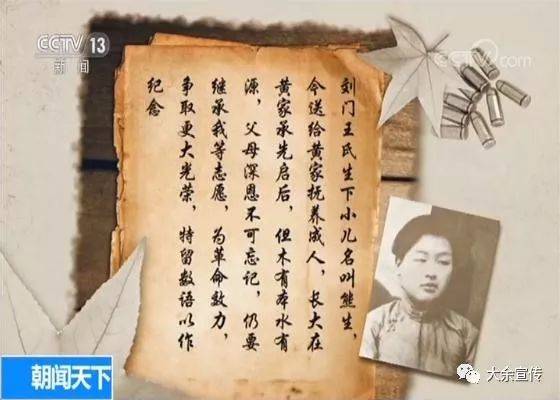 CCTV 13
新闻
CCTV.com
刘门王氏生下小儿名叫熊生，
今送给黄家抚养成人，长大在
黄家承先启后，但木有本水有
源，父母深恩不可忘记，仍要
继承我等志愿，为革命效力，
争取更大光荣，特留数语以作
纪念
朝闻天下
大余宣传